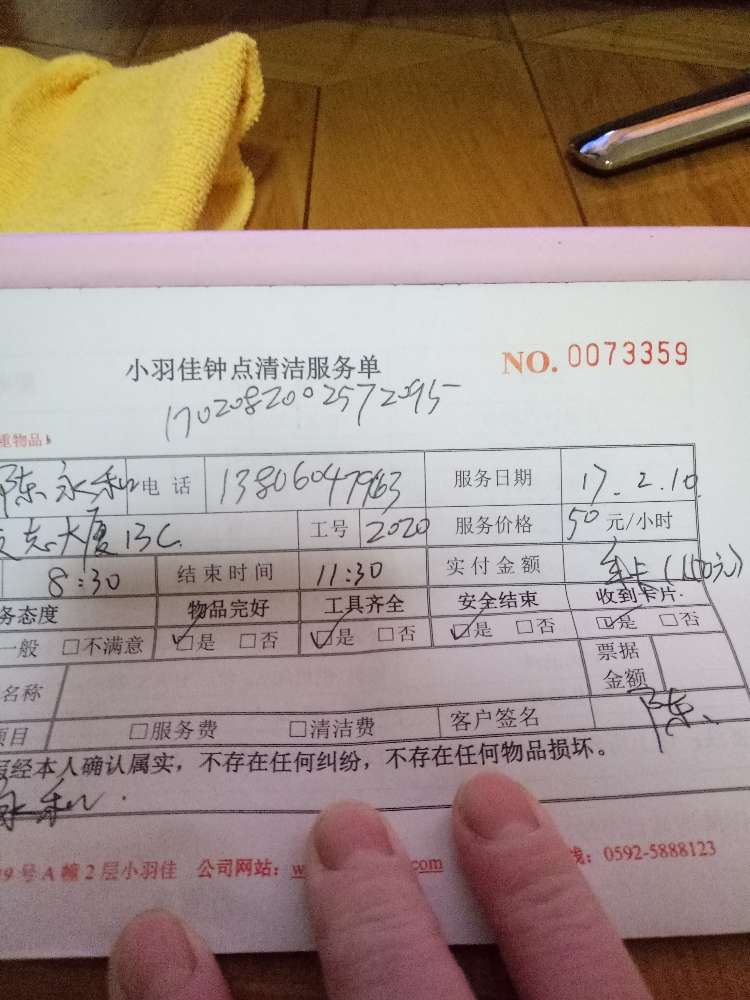 小羽佳钟点清洁服务单 NO. 0073359
1702082002572095
重物品
陈永和 电话 13806047963 服务日期 17.2.10
大厦13C 工号 2020 服务价格 50元/小时
8:30 结束时间 11:30 实付金额 年卡(150元)
务态度 物品完好 工具齐全 安全结束 收到卡片
一般 □不满意 □是 □否 □是 □否 □是 □否 □是 □否
名称 票据金额
项目 □服务费 □清洁费 客户签名 陈
经本人确认属实，不存在任何纠纷，不存在任何物品损坏。
永和
9号A幢2层小羽佳 公司网站：w com 0592-5888123